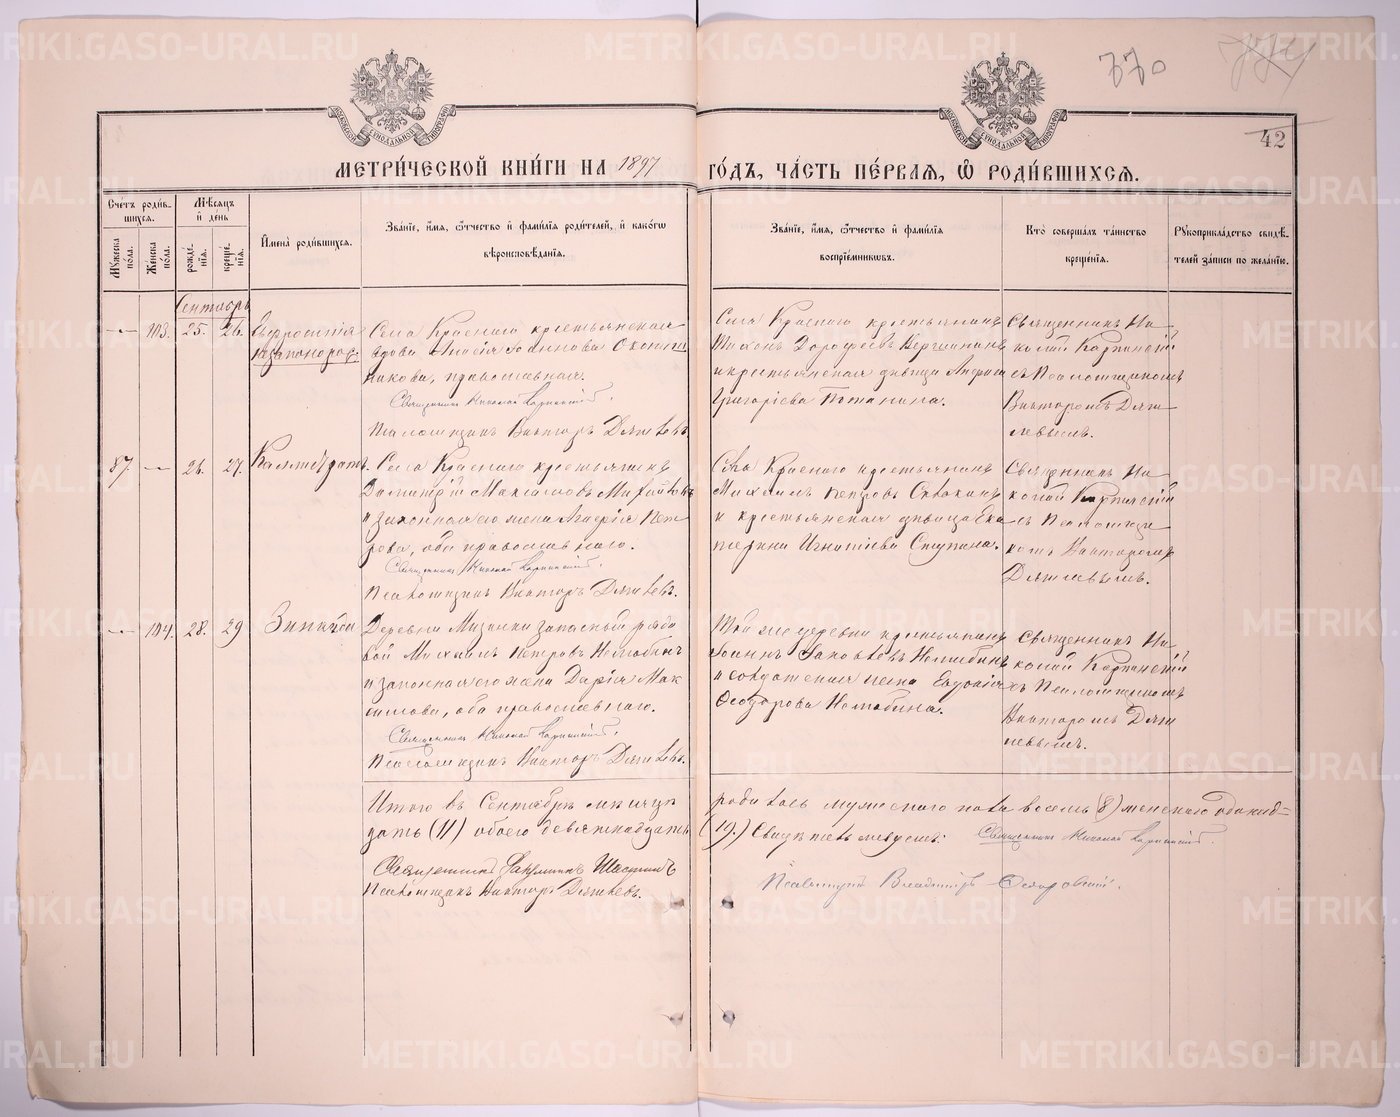 770
774
42
МОСКОВСКОЙ СѴНОДАЛЬНОЙ ТИПОГРАФІИ
МОСКОВСКОЙ СѴНОДАЛЬНОЙ ТИПОГРАФІИ
МЕТРИ́ЧЕСКОЙ КНИ́ГИ НА 1897 ГО́ДЪ, ЧА́СТЬ ПЕ́РВАЯ, Ѿ РОДИ́ВШИХСЯ.
Счётъ роди́в-
шихся.
Мѣсяцъ
и день
Мужеска пола.
Женска пола.
рожде́-
нія.
креще́-
нія.
Имена̀ роди́вшихся.
Зва́ніе, и́мя, ѻ҆́тчество и фами́лія роди́телей, и како́гѡ
вѣроисповѣ́данія.
Зва́ніе, и́мя, ѻ҆́тчество и фами́лія
воспріе́мниковъ.
Кто̀ соверша́лъ та́инство
креще́нія.
Рꙋкоприкла́дство свидѣ́-
телей за́писи по жела́нію.
Сентябрь
— 103. 25. 26. Евфросинія
незаконорож.
Села Краснаго крестьянская
вдова Анисія Іоаннова Оконни
никова, православная.
Священникъ Николай Карпинскій.
Псаломщикъ Викторъ Дягилевъ.
Села Краснаго крестьянинъ
Тихонъ Дорофеевъ Вершининъ
и крестьянская дѣвица
Григоріева Потанина.
Священникъ Ни-
колай Карпинскій
съ Псаломщикомъ
Викторомъ Дяги-
левымъ.
87. — 26. 27. Каллистратъ.
Села Краснаго крестьянинъ
Димитрій Максимовъ
и законная его жена Агафія Пет
рова, оба православнаго.
Священникъ Николай Карпинскій.
Псаломщикъ Викторъ Дягилевъ.
Села Краснаго крестьянинъ
Михаилъ Петровъ
и крестьянская дѣвица Ека
терина Игнатіева Ступина.
Священникъ Ни-
колай Карпинскій
съ Псаломщи-
комъ Викторомъ
Дягилевымъ.
— 104. 28. 29 Зинаида
Деревни Мизинки запасный рядо
вой Михаилъ Петровъ
и законная его жена Дарія Мак
симова, оба православнаго.
Священникъ Николай Карпинскій.
Псаломщикъ Викторъ Дягилевъ.
Той же деревни крестьянинъ
Іоаннъ Іаковлевъ
и солдатская жена Евдокія
Ѳеодорова
Священникъ Ни-
колай Карпинскій
съ Псаломщикомъ
Викторомъ Дяги
левымъ.
Итого въ Сентябрѣ мѣсяцѣ родилось мужескаго пола восемь (8) женскаго одинад-
цать (11) обоего девятнадцать (19.) Свидѣтельствуемъ: Священникъ Николай Карпинскій.
Священникъ
Псаломщикъ Викторъ Дягилевъ.
Псаломщикъ Владиміръ